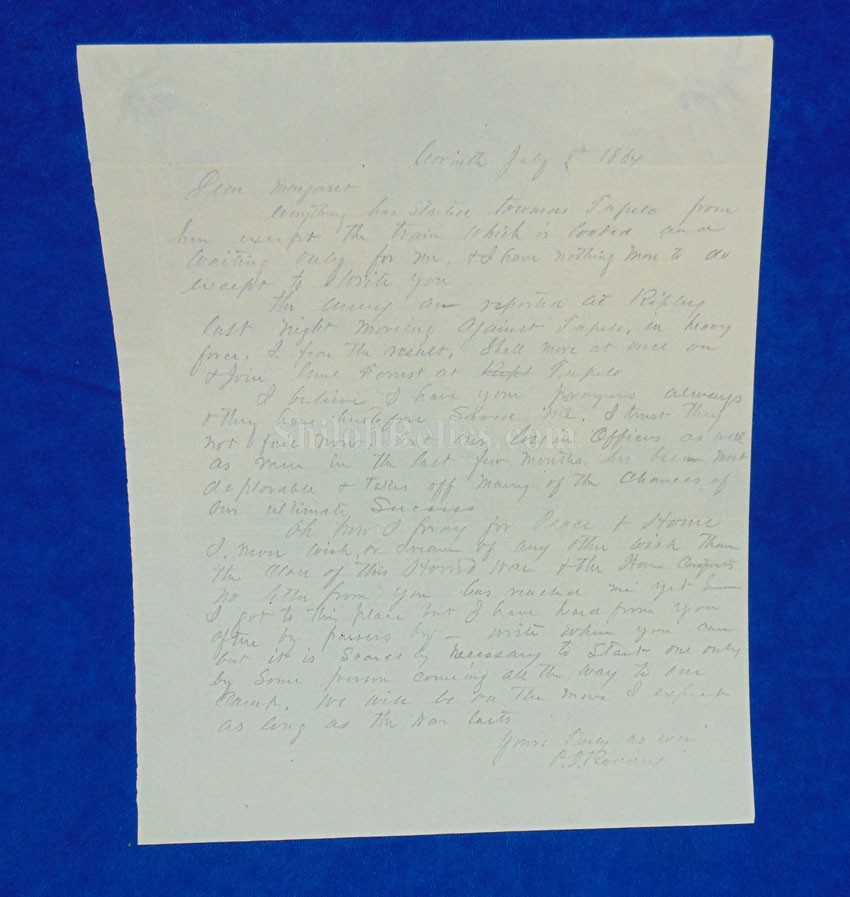 Corinth July 8th 1864
Dear Margaret
Everything has started towards Tupelo from
here except the train which is loaded and
waiting only for me, & I have nothing more to do
except to write you
The enemy are reported at Ripley
last night moving against Tupelo, in heavy
force, I fear the result, Shall move at once on
& Join Genl Forrest at Tupelo
I believe I have your prayers always
& they have heretofore Saved me, I trust they
not fail now Our loss in Officers as well
as men in the last few months, has been most
deplorable & takes off many of the chances of
our ultimate Success
Oh how I pray for Peace & Home
I never wish, or dream of any other wish than
the Close of this Horrid war & the Home Comforts
No letter from you has reached me yet Since
I got to this place but I have heard from you
often by passers by – write when you can
but it is Scarcely necessary to Start one only
by Some person coming all the way to our
Camp. We will be on the move I expect
as long as the war lasts
Yours Truly as ever
P.D. Roddey
ShilohRelics.com